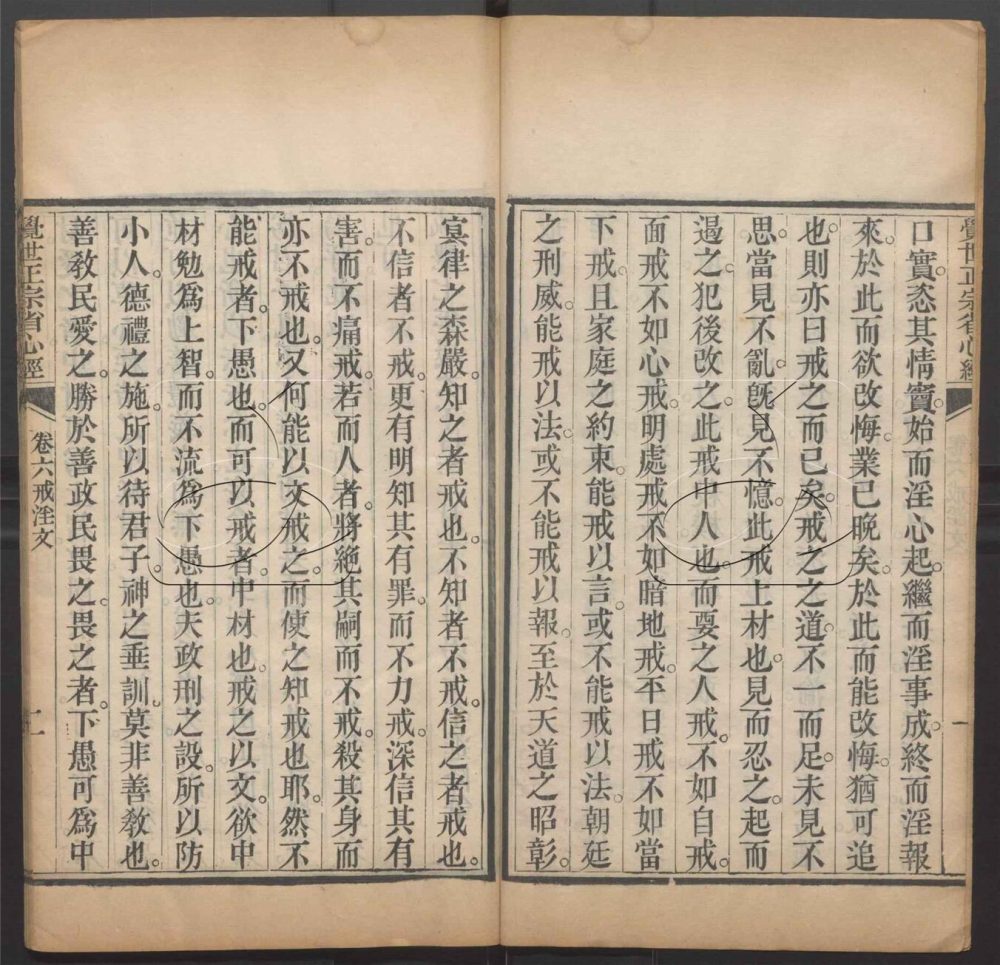 覺世正宗省心經
一
口實。恣其情竇。始而淫心起。繼而淫事成。終而淫報
來。於此而欲改悔。業已晚矣。於此而能改悔。猶可追
也。則亦曰戒之而已矣。戒之之道。不一而足。未見不
思。當見不亂。旣見不憶。此戒上材也。見而忍之。起而
遏之。犯後改之。此戒中人也。而要之人戒。不如自戒。
面戒不如心戒。明處戒不如暗地戒。平日戒不如當
下戒。且家庭之約束。能戒以言。或不能戒以法。朝廷
之刑威。能戒以法。或不能戒以報。至於天道之昭彰。
㝠律之森嚴。知之者戒也。不知者不戒。信之者戒也。
不信者不戒。更有明知其有罪。而不力戒。深信其有
害。而不痛戒。若而人者。將絕其嗣而不戒。殺其身而
亦不戒也。又何能以文戒之。而使之知戒也耶。然不
能戒者。下愚也。而可以戒者。中材也。戒之以文。欲中
材勉爲上智。而不流爲下愚也。夫政刑之設。所以防
小人。德禮之施。所以待君子。神之垂訓。莫非善教也。
善教民愛之。勝於善政民畏之。畏之者。下愚可爲中
覺世正宗省心經
卷六戒淫文
二